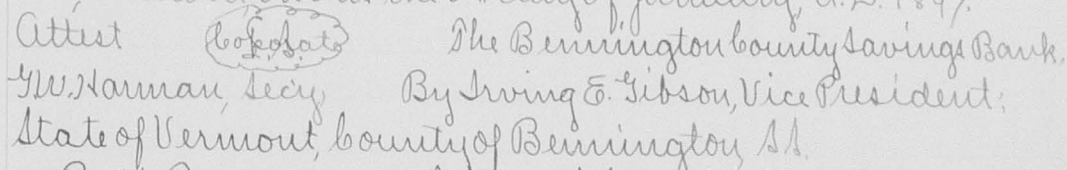 Attest The Bennington County Savings Bank.
G.W. Harman, Secy By Irving E. Gibson, Vice President.
State of Vermont, County of Bennington, SS.